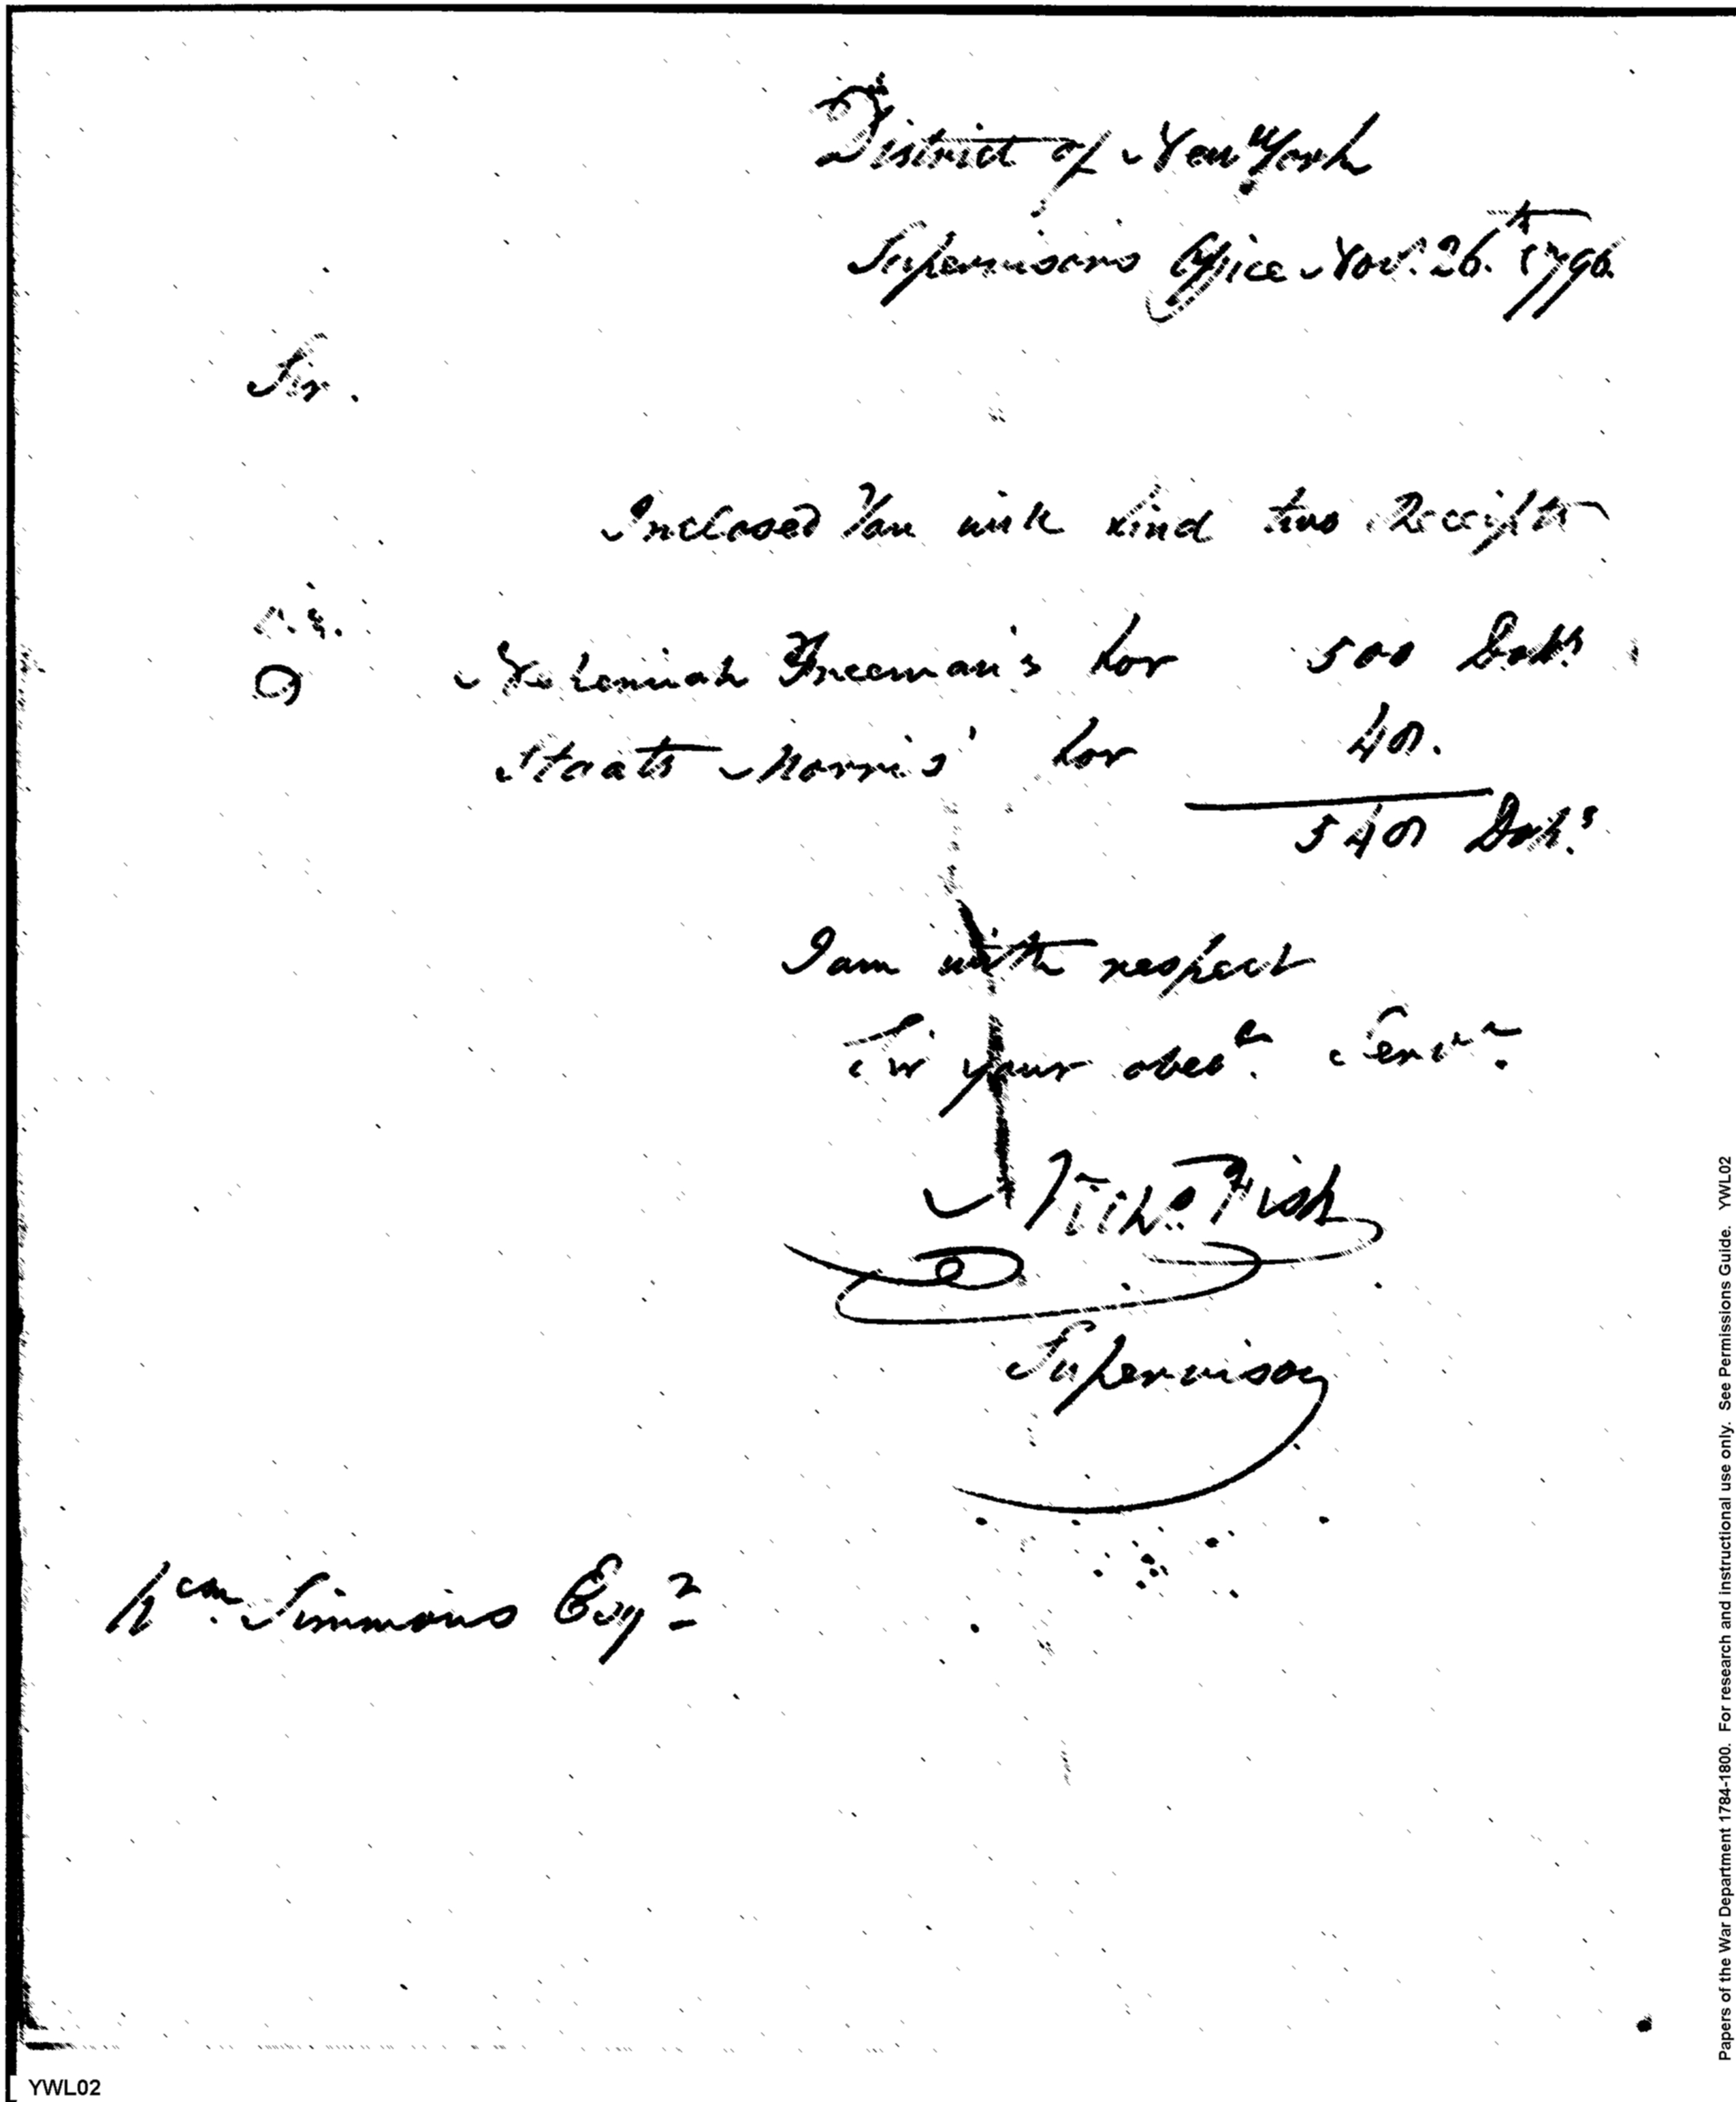 District of New York
Supervisors Office Nov.r 26.th 1796.
Sir.
Inclosed You will find two Receipts
Nehemiah Freeman's for 500 Doll.s
Staats Morris' for 40.
540 Doll.s
I am with respect
Sir your obed.t Serv.t
Nich.s Fish
Supervisor
W.m Simmons Esq.r
YWL02
Papers of the War Department 1784-1800. For research and instructional use only. See Permissions Guide. YWL02